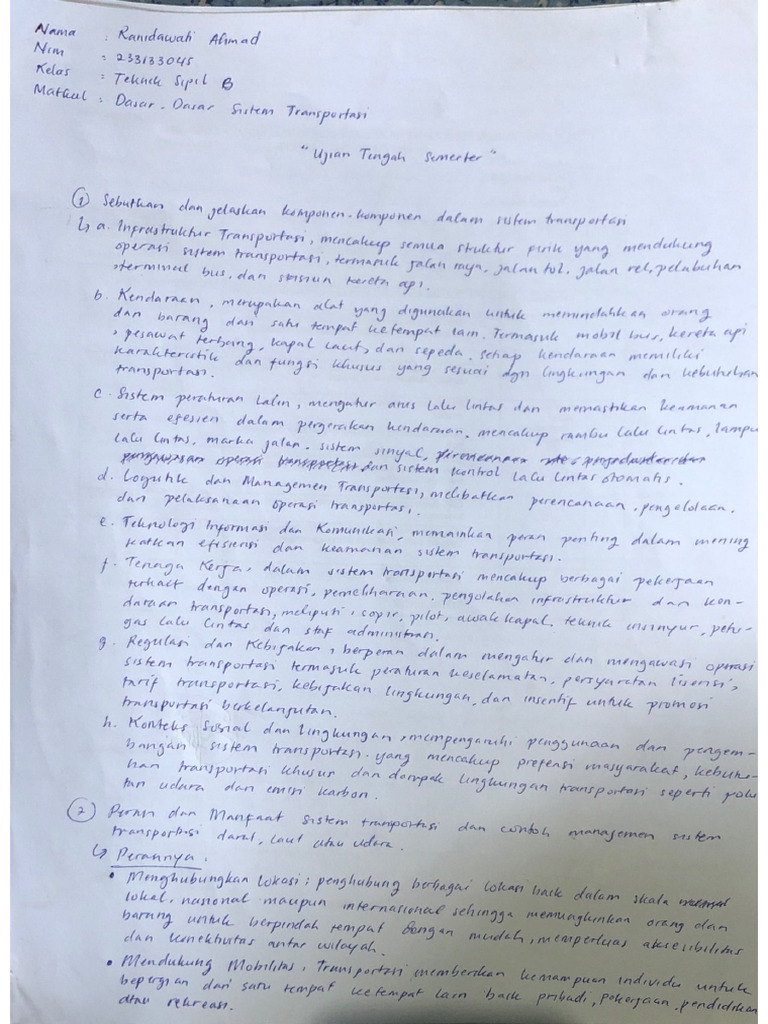 Nama : Ranidawati Ahmad
Nim : 233133045
Kelas : Teknik Sipil B
Matkul : Dasar-Dasar Sistem Transportasi
"Ujian Tengah Semester"
① Sebutkan dan jelaskan komponen-komponen dalam sistem transportasi
↳ a. Infrastruktur Transportasi, mencakup semua struktur fisik yang mendukung
operasi sistem transportasi, termasuk jalan raya, jalan tol, jalan rel, pelabuhan
, terminal bus, dan stasiun kereta api.
b. Kendaraan, merupakan alat yang digunakan untuk memindahkan orang
dan barang dari satu tempat ketempat lain. Termasuk mobil bus, kereta api
, pesawat terbang, kapal laut, dan sepeda. setiap kendaraan memiliki
karakteristik dan fungsi khusus yang sesuai dgn lingkungan dan kebutuhan
transportasi.
c. Sistem peraturan Lalin, mengatur arus lalu lintas dan memastikan keamanan
serta efesien dalam pergerakan kendaraan, mencakup rambu lalu lintas, lampu
lalu lintas, marka jalan, sistem sinyal,
dan sistem kontrol lalu lintas otomatis.
d. Logistik dan Managemen Transportasi, melibatkan perencanaan, pengelolaan,
dan pelaksanaan operasi transportasi.
e. Teknologi Informasi dan Komunikasi, memainkan peran penting dalam mening
katkan efisiensi dan keamanan sistem transportasi.
f. Tenaga Kerja, dalam sistem transportasi mencakup berbagai pekerjaan
terkait dengan operasi, pemeliharaan, pengolahan infrastruktur dan ken-
daraan transportasi, meliputi, sopir, pilot, awak kapal, teknik insinyur, petu-
gas lalu lintas dan staf administrasi.
g. Regulasi dan Kebijakan, berperan dalam mengatur dan mengawasi operasi
sistem transportasi termasuk peraturan keselamatan, persyaratan lisensi,
tarif transportasi, kebijakan lingkungan, dan insentif untuk promosi
transportasi berkelanjutan.
h. Konteks Sosial dan Lingkungan, mempengaruhi penggunaan dan pengem-
bangan sistem transportasi. yang mencakup prefensi masyarakat, kebutu-
han transportasi khusus dan dampak lingkungan transportasi seperti polu
tan udara dan emisi karbon.
② Peran dan Manfaat sistem transportasi dan contoh managemen sistem
transportasi darat, laut atau udara.
↳ Perannya.
• Menghubungkan Lokasi : penghubung berbagai lokasi baik dalam skala
lokal, nasional maupun internasional sehingga memungkinkan orang dan
barang untuk berpindah tempat dengan mudah, memperluas aksesibilitas
dan konektivitas antar wilayah.
• Mendukung Mobilitas : Transportasi memberikan kemampuan individu untuk
bepergian dari satu tempat ketempat lain baik pribadi, pekerjaan, pendidikan
atau rekreasi.